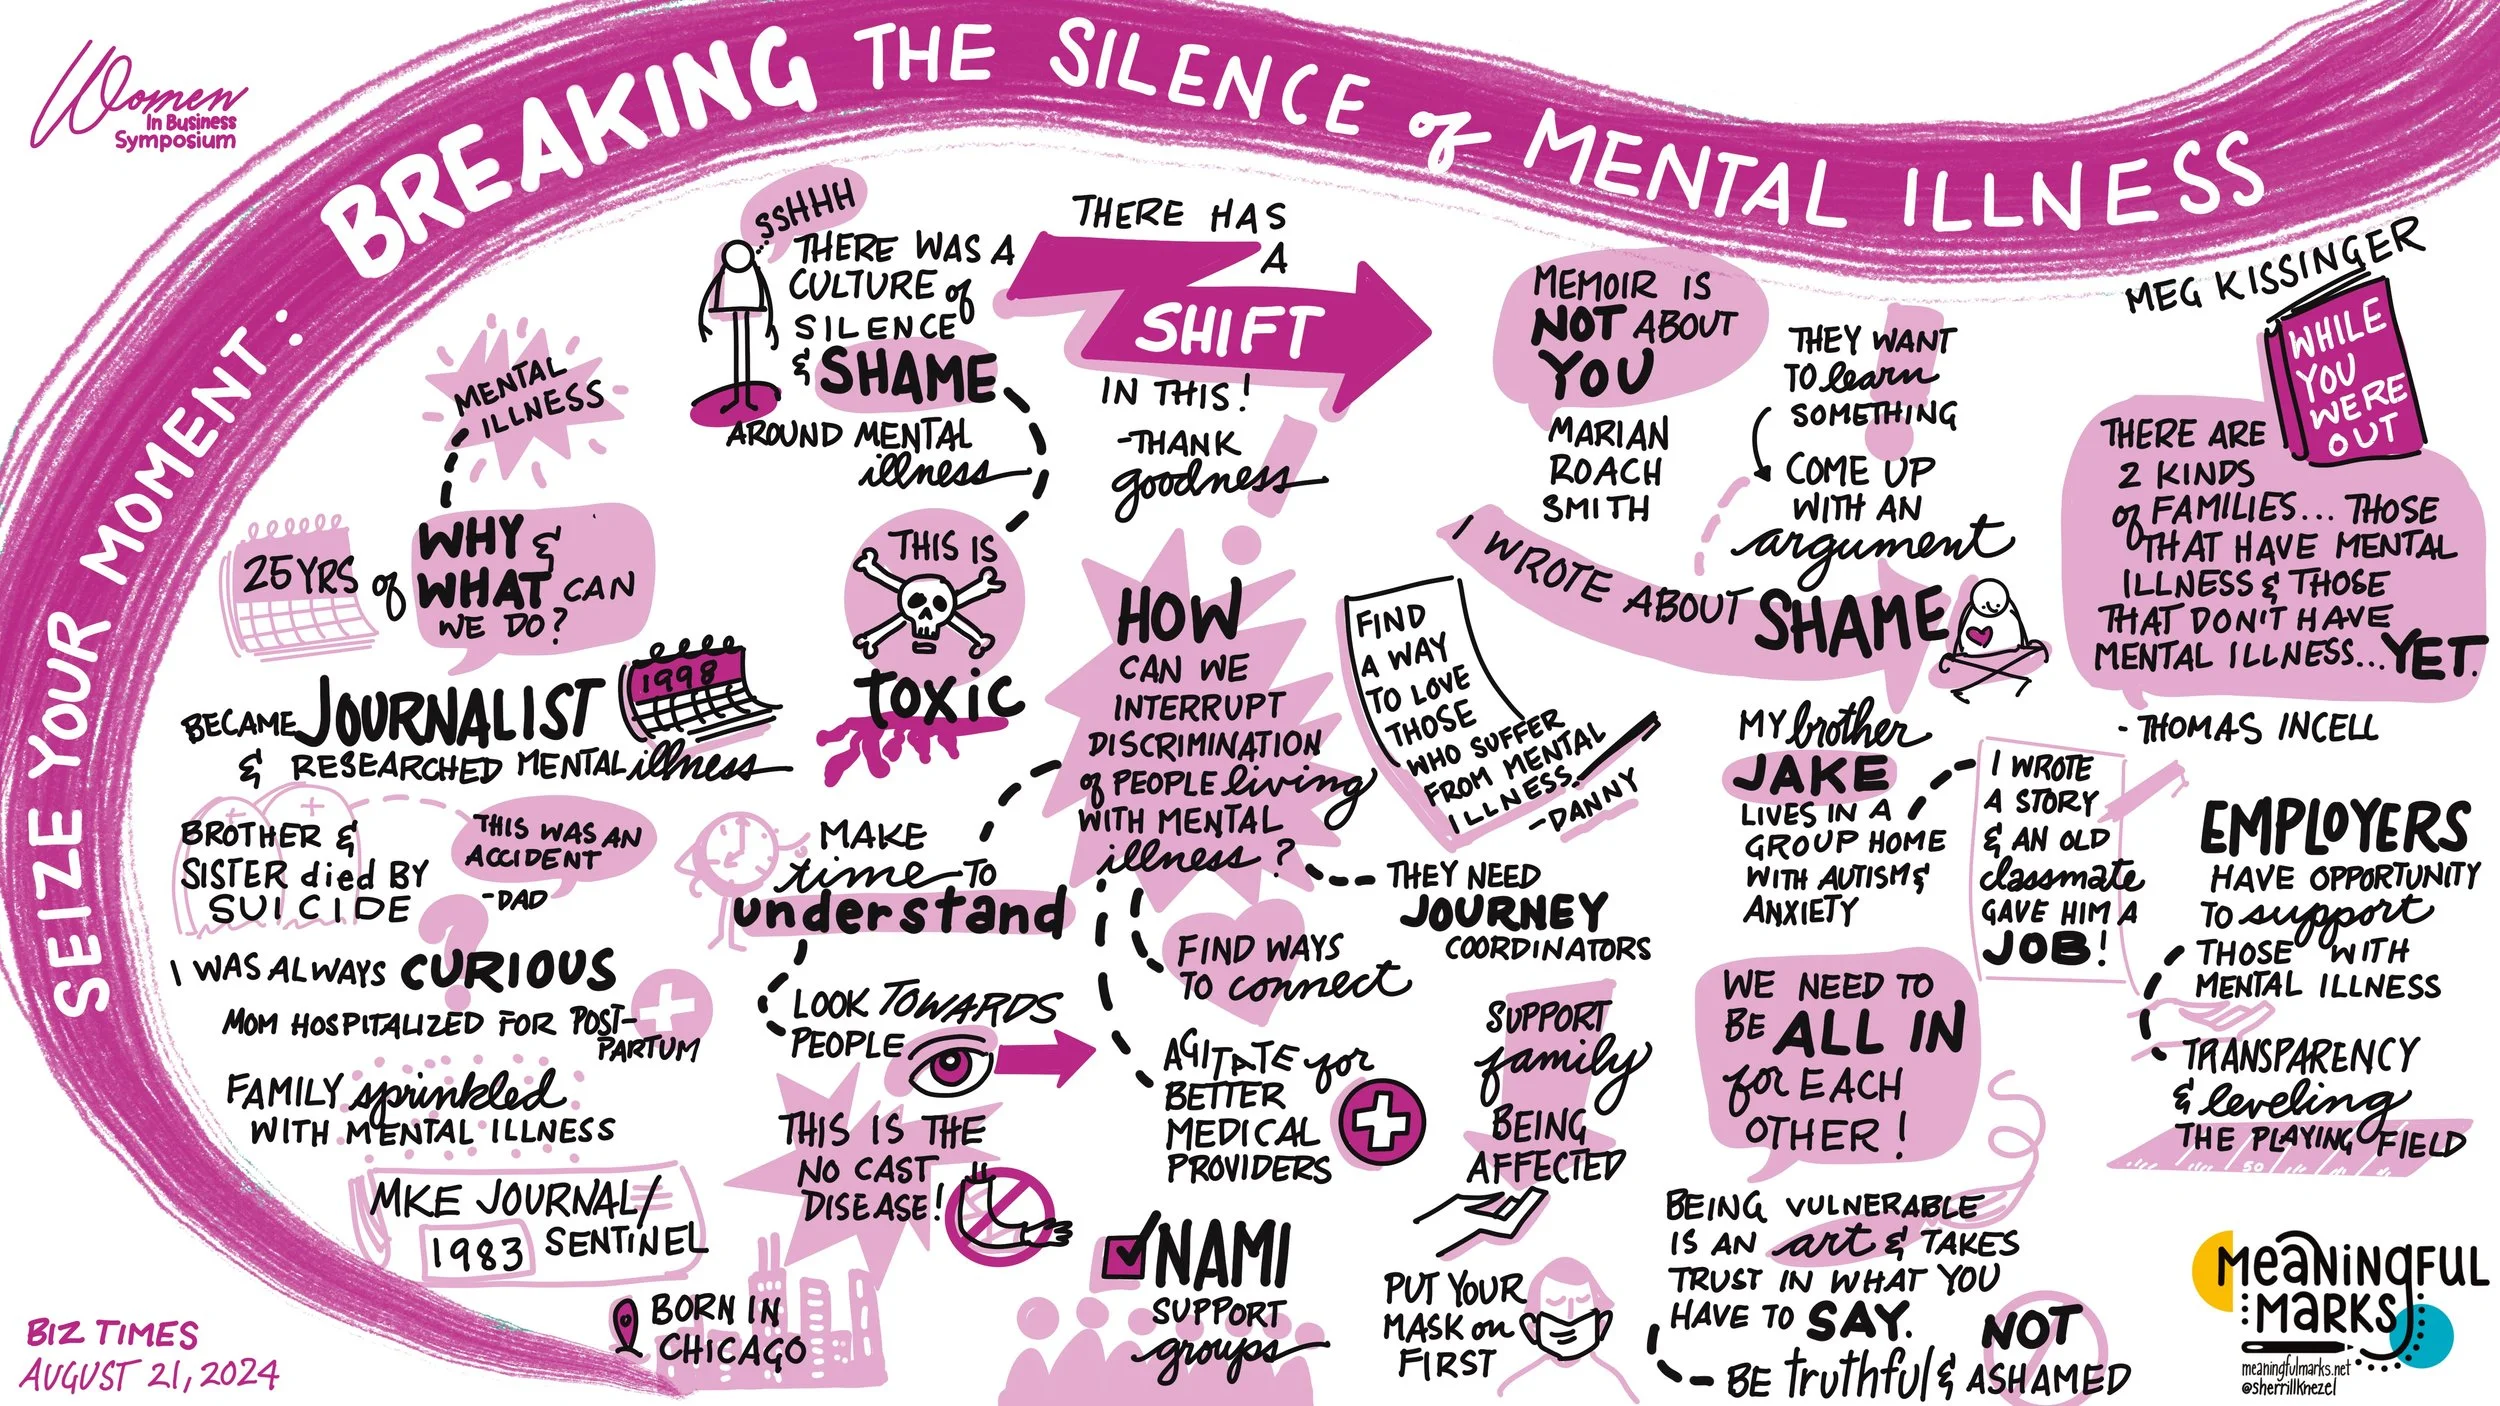 Women
In Business
Symposium
SEIZE YOUR MOMENT: BREAKING THE SILENCE of MENTAL ILLNESS
BIZ TIMES
AUGUST 21, 2024
BORN IN
CHICAGO
MKE JOURNAL/
SENTINEL
1983
FAMILY sprinkled
WITH MENTAL ILLNESS
MOM HOSPITALIZED FOR POST-
PARTUM
I WAS ALWAYS CURIOUS
?
BROTHER &
SISTER died BY
SUICIDE
THIS WAS AN
ACCIDENT
-DAD
BECAME JOURNALIST
& RESEARCHED MENTAL illness
1998
25 YRS of
WHY &
WHAT CAN
WE DO?
MENTAL
ILLNESS
SSHHH
THERE WAS A
CULTURE of
SILENCE
& SHAME
AROUND MENTAL
illness
THIS IS
TOXIC
THERE HAS
A
SHIFT
IN THIS!
-THANK
goodness
!
HOW
CAN WE
INTERRUPT
DISCRIMINATION
of PEOPLE living
WITH MENTAL
illness?
MAKE
time TO
understand
LOOK TOWARDS
PEOPLE
THIS IS THE
NO CAST
DISEASE!
FIND WAYS
TO connect
AGITATE for
BETTER
MEDICAL
PROVIDERS
NAMI
SUPPORT
groups
THEY NEED
JOURNEY
COORDINATORS
FIND
A WAY
TO LOVE
THOSE
WHO SUFFER
FROM MENTAL
ILLNESS.
-DANNY
SUPPORT
family
BEING
AFFECTED
PUT YOUR
MASK on
FIRST
MEMOIR IS
NOT ABOUT
YOU
MARIAN
ROACH
SMITH
THEY WANT
TO learn
SOMETHING
COME UP
WITH AN
argument
I WROTE ABOUT SHAME
MY brother
JAKE
LIVES IN A
GROUP HOME
WITH AUTISM &
ANXIETY
I WROTE
A STORY
& AN OLD
classmate
GAVE HIM A
JOB!
WE NEED TO
BE ALL IN
for EACH
OTHER!
BEING VULNERABLE
IS AN art & TAKES
TRUST IN WHAT YOU
HAVE TO SAY.
BE truthful & NOT
ASHAMED
MEG KISSINGER
WHILE
YOU
WERE
OUT
THERE ARE
2 KINDS
of FAMILIES... THOSE
THAT HAVE MENTAL
ILLNESS & THOSE
THAT DON'T HAVE
MENTAL ILLNESS... YET.
-THOMAS INCELL
EMPLOYERS
HAVE OPPORTUNITY
TO support
THOSE WITH
MENTAL ILLNESS
TRANSPARENCY
& leveling
THE PLAYING FIELD
50
MeaNiNgFUL
MaRKS
meaningfulmarks.net
@sherrillknezel